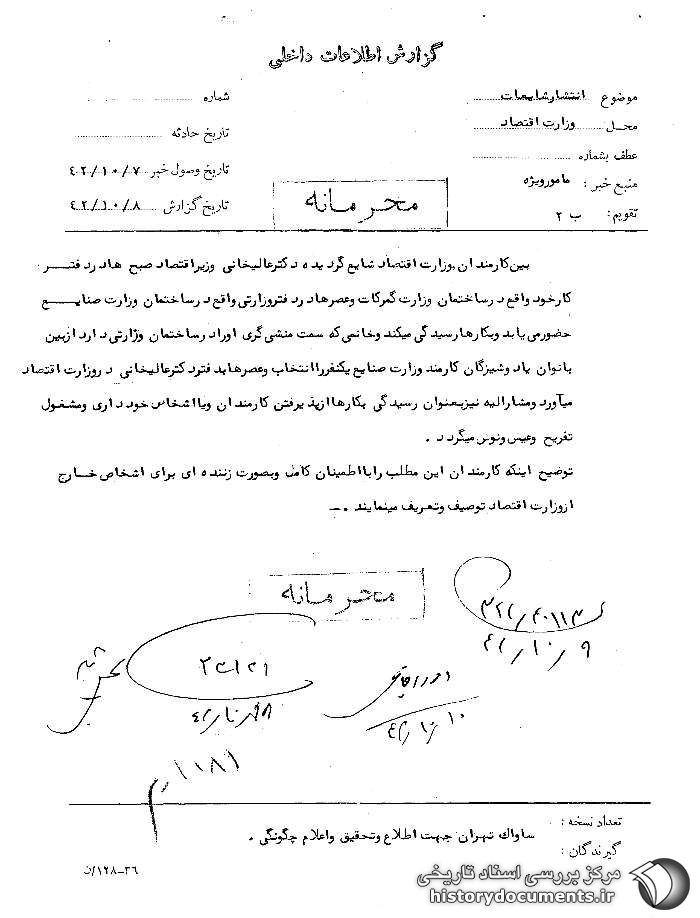 گزارش اطلاعات داخلی
موضوع انتشار شایعات
محل وزارت اقتصاد
عطف بشماره
منبع خبر: مامور ویژه
تقویم: ب ۲
شماره
تاریخ حادثه
تاریخ وصول خبر ۴۲/۱۰/۷
تاریخ گزارش ۴۲/۱۰/۸
محرمانه
بین کارمندان وزارت اقتصاد شایع گردیده دکتر عالیخانی وزیر اقتصاد صبح ها در دفتر
کار خود واقع در ساختمان وزارت گمرکات وعصرها در دفتر وزارتی واقع در ساختمان وزارت صنایع
حضور می یابد وبکارها رسیدگی میکند وخانمی که سمت منشی گری او را در ساختمان وزارتی دارد از بین
بانوان یا دوشیزگان کارمند وزارت صنایع یکنفر را انتخاب وعصرها بدفتر دکتر عالیخانی در وزارت اقتصاد
میآورد ومشارالیه نیز بعنوان رسیدگی بکارها از پذیرفتن کارمندان ویا اشخاص خودداری ومشغول
تفریح وعیس ونوس میگردد .
توضیح اینکه کارمندان این مطلب را با اطمینان کامل وبصورت زننده ای برای اشخاص خارج
از وزارت اقتصاد توصیف وتعریف مینمایند .—
محرمانه
۴۲/۱۰/۹
۴۲/۱۰/۱۰
۱۱۸۱
تعداد نسخه :
گیرندگان :
ساواک تهران جهت اطلاع وتحقیق واعلام چگونگی .
۳۶-۱۲۸/ن
مرکز بررسی اسناد تاریخی
historydocuments.ir